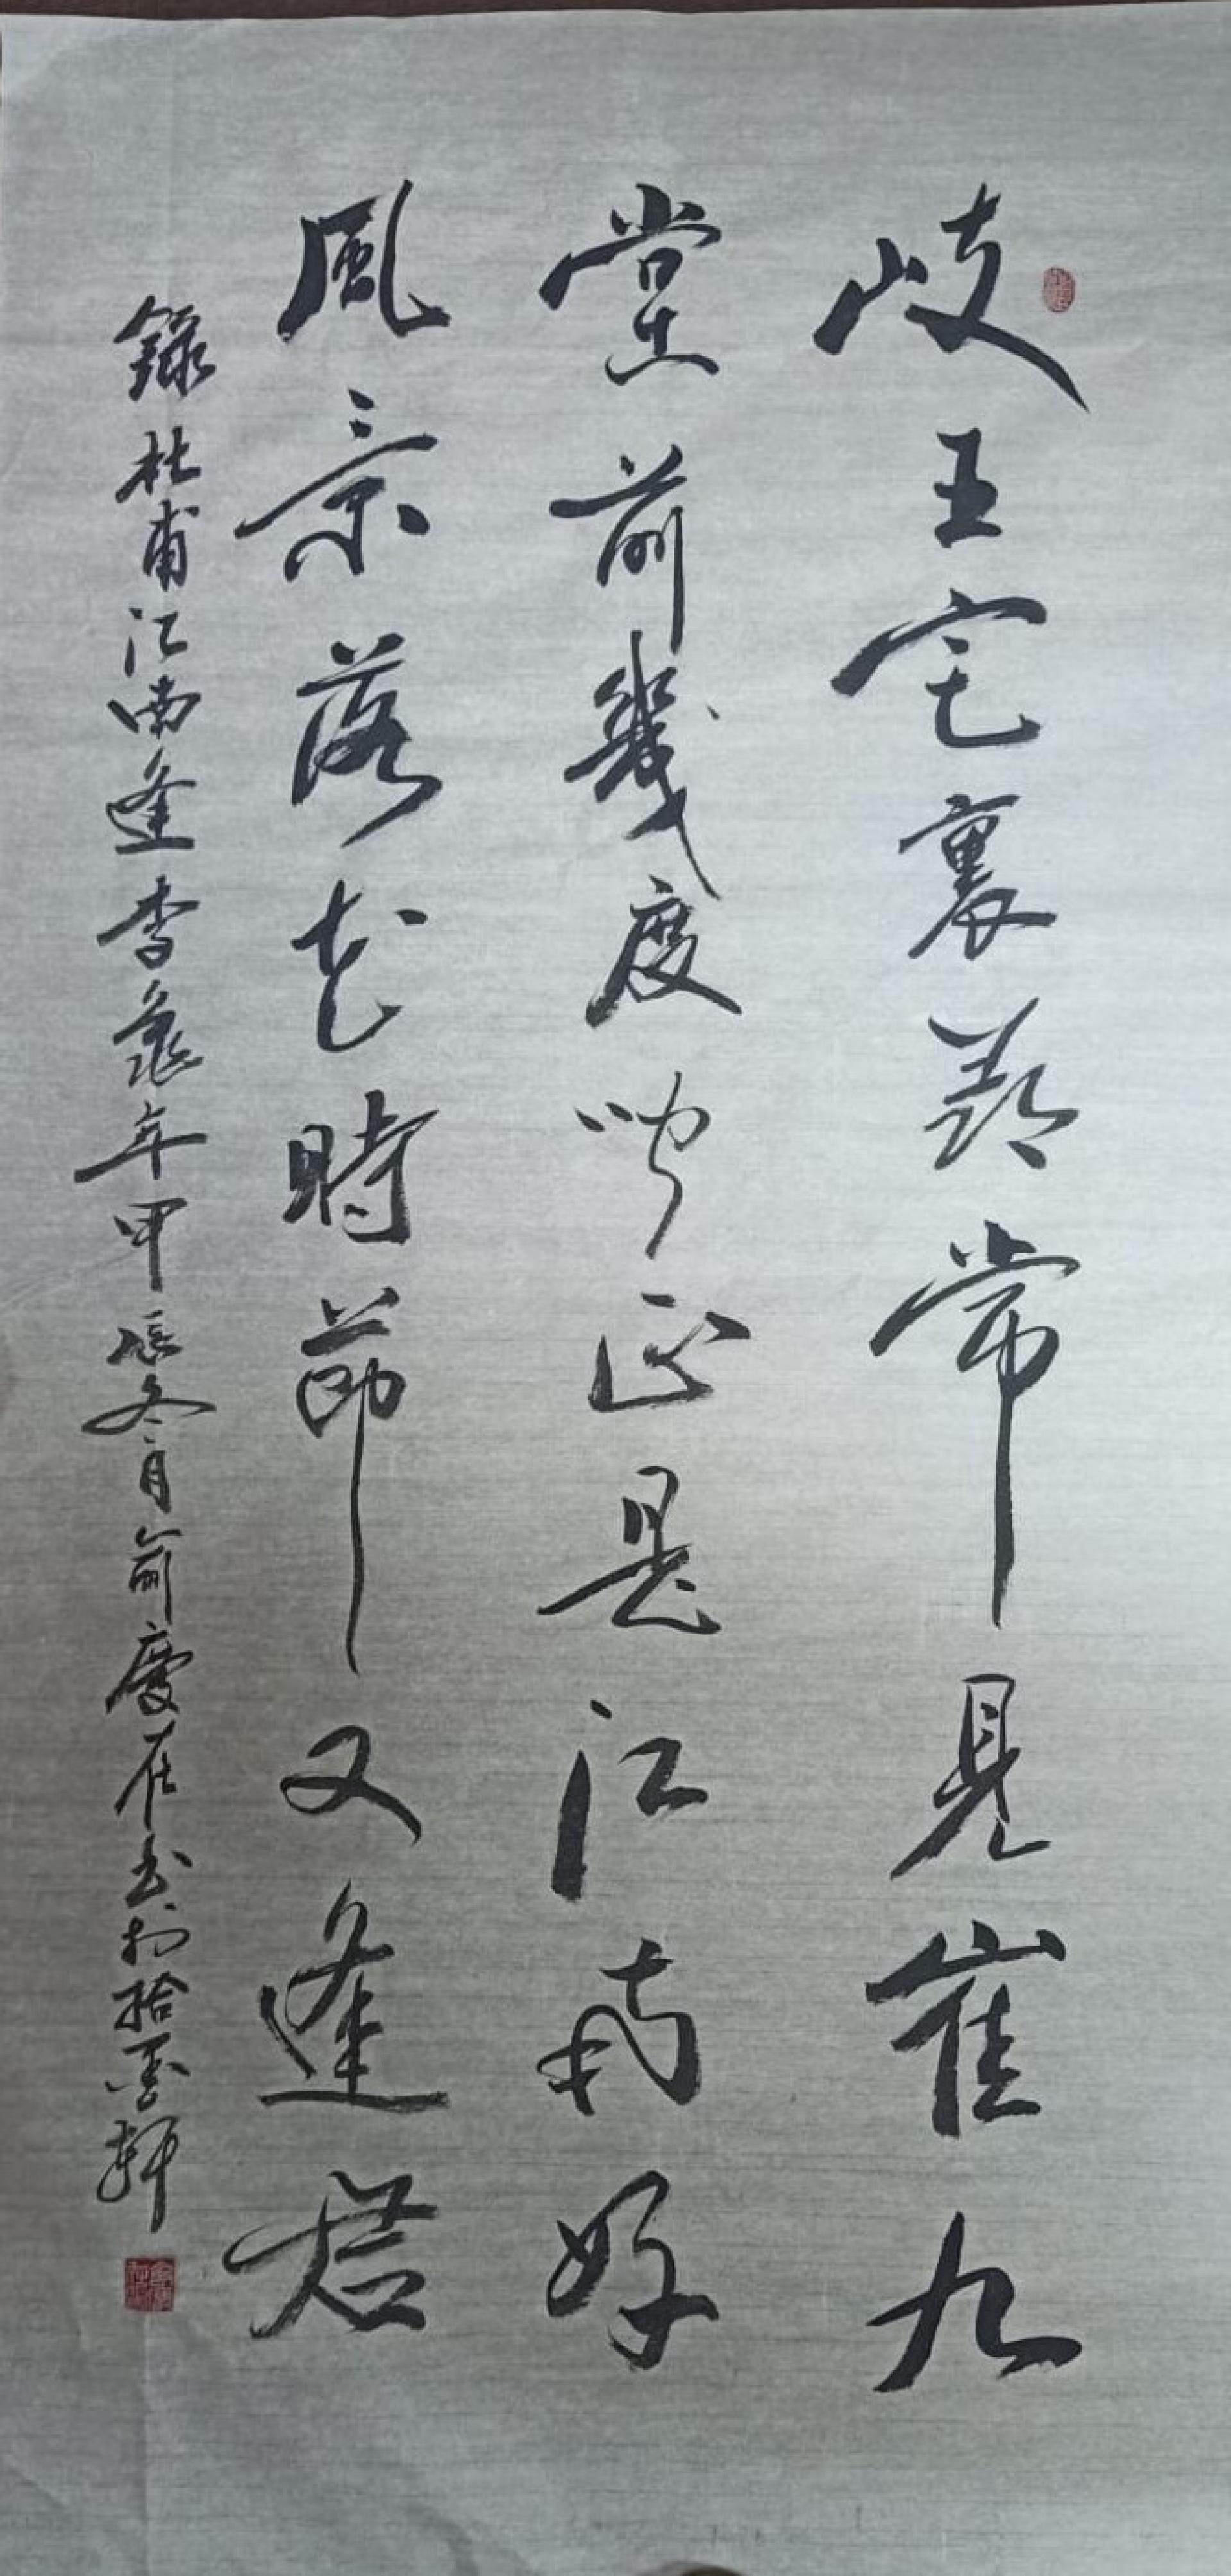 岐王宅裏尋常見崔九
堂前幾度聞正是江南好
風景落花時節又逢君
錄杜甫江南逢李龜年甲辰冬月俞慶在書於拾墨軒